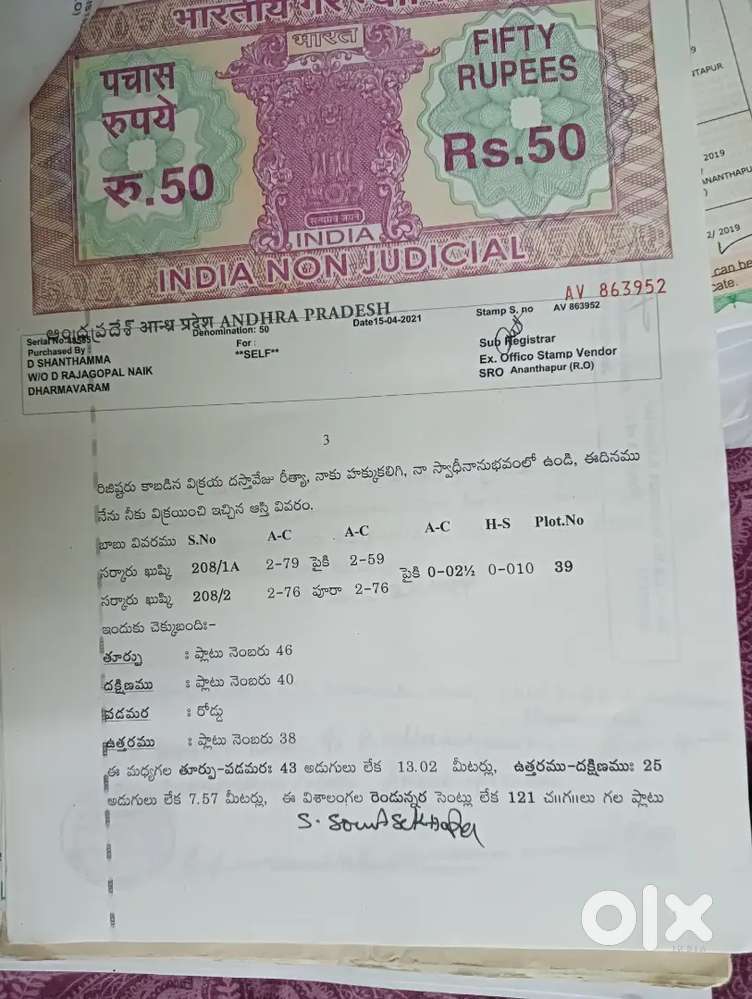 भारतीय
भारत
पचास
रुपये
रु.50
FIFTY
RUPEES
Rs.50
सत्यमेव जयते
INDIA
INDIA NON JUDICIAL
ఆంధ్ర ప్రదేశ్ आन्ध्र प्रदेश ANDHRA PRADESH
AV 863952
Denomination: 50
Date15-04-2021
Stamp S. no AV 863952
Purchased By :
For :
Sub Registrar
D SHANTHAMMA
**SELF**
Ex. Office Stamp Vendor
W/O D RAJAGOPAL NAIK
SRO Ananthapur (R.O)
DHARMAVARAM
3
రిజిష్టరు కాబడిన విక్రయ దస్తావేజు రీత్యా, నాకు హక్కుకలిగి, నా స్వాధీనానుభవంలో ఉండి, ఈదినము
నేను నీకు విక్రయించి ఇచ్చిన ఆస్తి వివరం.
బాబు వివరము S.No A-C A-C A-C H-S Plot.No
సర్కారు ఖుష్కి 208/1A 2-79 పైకి 2-59
పైకి 0-02½ 0-010 39
సర్కారు ఖుష్కి 208/2 2-76 పూరా 2-76
ఇందుకు చెక్కుబందిః-
తూర్పు : ప్లాటు నెంబరు 46
దక్షిణము : ప్లాటు నెంబరు 40
పడమర : రోడ్డు
ఉత్తరము : ప్లాటు నెంబరు 38
ఈ మధ్యగల తూర్పు-పడమరః 43 అడుగులు లేక 13.02 మీటర్లు, ఉత్తరము-దక్షిణముః 25
అడుగులు లేక 7.57 మీటర్లు, ఈ విశాలంగల రెండున్నర సెంట్లు లేక 121 చ॥గ॥లు గల ప్లాటు
2019
2/ 2019
can be
olx
INDIA